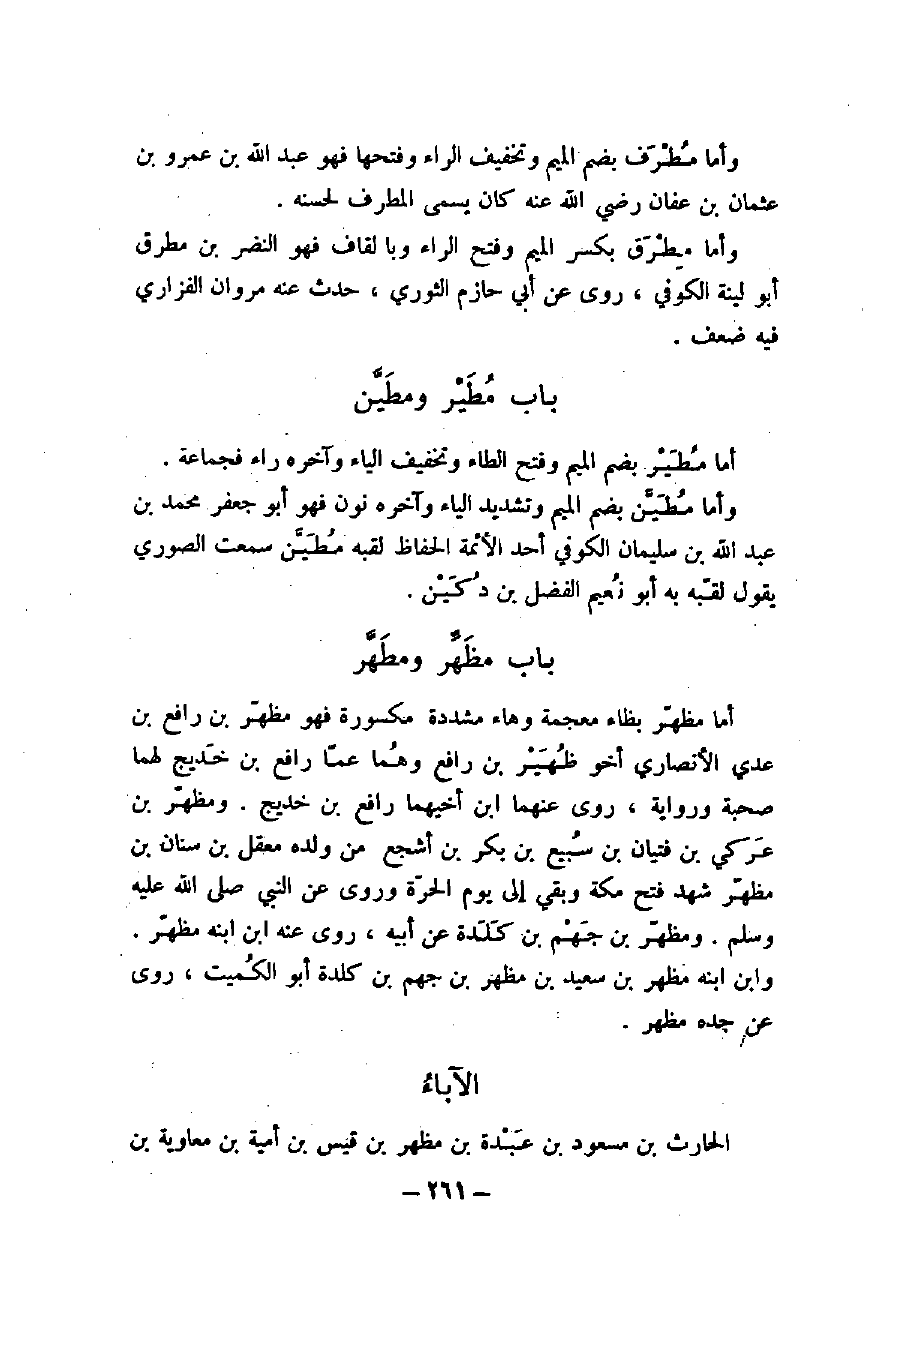 وأما مُطْرَف بضم الميم وتخفيف الراء وفتحها فهو عبد الله بن عمرو بن
عثمان بن عفان رضي الله عنه كان يسمى المطرف لحسنه .
وأما مِطْرَق بكسر الميم وفتح الراء وبالقاف فهو النضر بن مطرق
أبو لينة الكوفي ، روى عن أبي حازم الثوري ، حدث عنه مروان الفزاري
فيه ضعف .
باب مُطَيْر ومطَيَّن
أما مُطَيْر بضم الميم وفتح الطاء وتخفيف الياء وآخره راء فجماعة .
وأما مُطَيَّن بضم الميم وتشديد الياء وآخره نون فهو أبو جعفر محمد بن
عبد الله بن سليمان الكوفي أحد الأئمة الحفاظ لقبه مُطَيَّن سمعت الصوري
يقول لقّبه به أبو نُعيم الفضل بن دُكَيْن .
باب مظَهَّر ومطَهَّر
أما مظهّر بظاء معجمة وهاء مشددة مكسورة فهو مظهّر بن رافع بن
عدي الأنصاري أخو ظُهَيْر بن رافع وهُما عمّا رافع بن خَديج لهما
صحبة ورواية ، روى عنهما ابن أخيهما رافع بن خديج . ومظهّر بن
عَرَكي بن فتيان بن سُبيع بن بكر بن أشجع من ولده معقل بن سنان بن
مظهّر شهد فتح مكة وبقي إلى يوم الحرّة وروى عن النبي صلى الله عليه
وسلم . ومظهّر بن جَهْم بن كَلَدة عن أبيه ، روى عنه ابن ابنه مظهّر .
وابن ابنه مظهر بن سعيد بن مظهر بن جهم بن كلدة أبو الكُميت ، روى
عن جده مظهر .
الآباءُ
الحارث بن مسعود بن عَبْدة بن مظهر بن قيس بن أمية بن معاوية بن
– ٢٦١ –